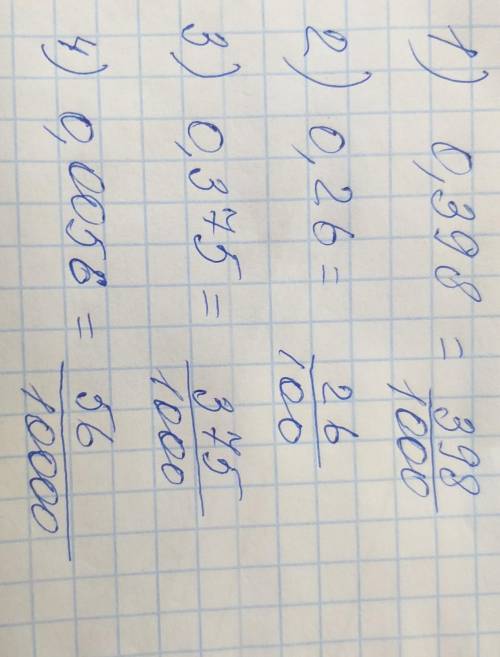 1) 0,398 = 398/1000
2) 0,26 = 26/100
3) 0,375 = 375/1000
4) 0,0056 = 56/10000